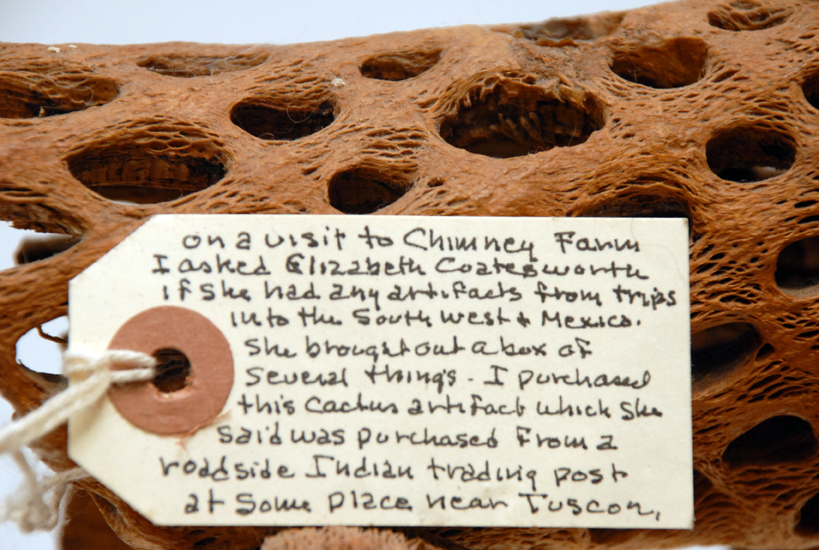 on a visit to Chimney Farm
I asked Elizabeth Coatesworth
if she had any artifacts from trips
into the South west & Mexico.
She brought out a box of
several things. I purchased
this cactus artifact which she
said was purchased from a
roadside Indian trading post
at some place near Tuscon,